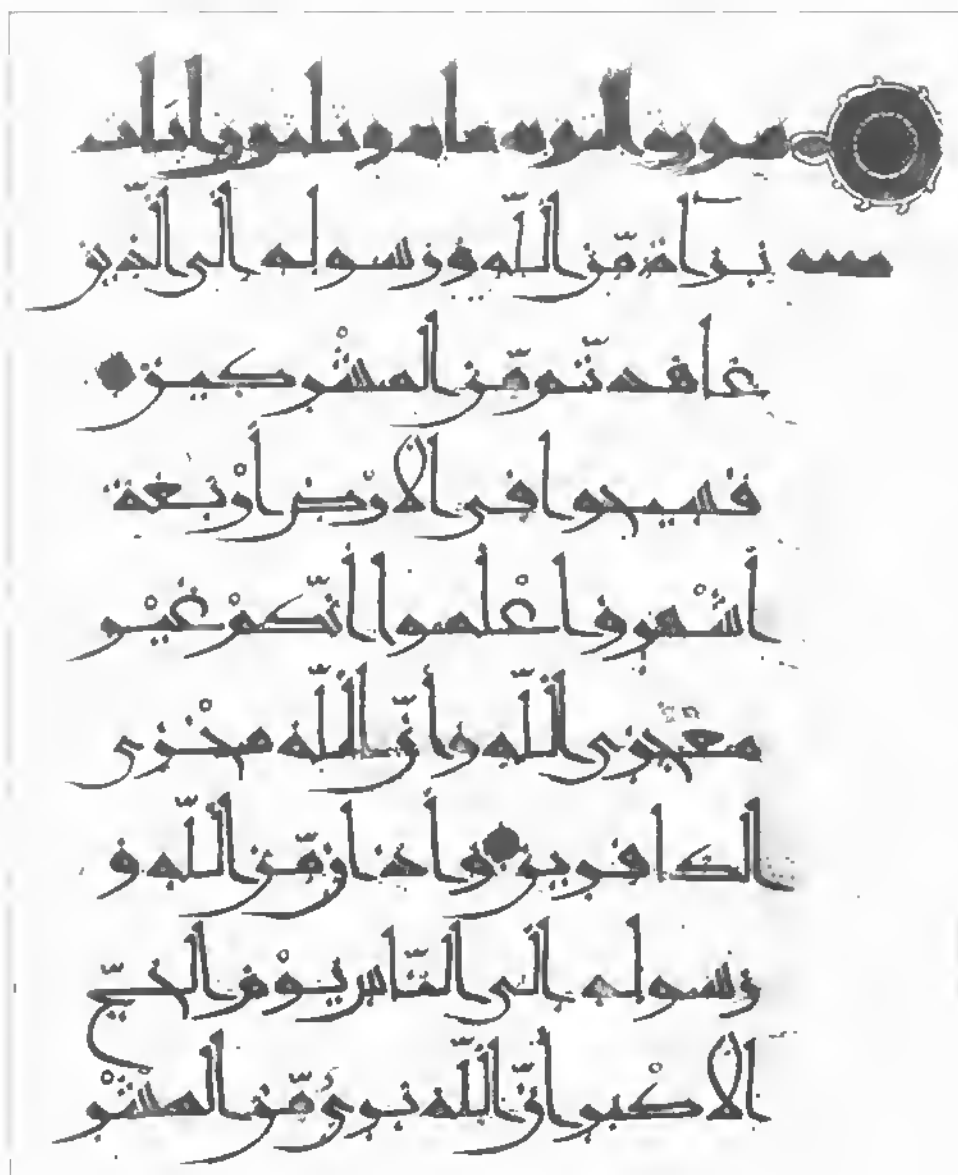 سورة التوبة مائة وثلثون
بَرَآةٌ مِّنَ اللَّهِ وَرَسُولِهِ إِلَى الَّذِينَ
عَاهَدتُّم مِّنَ الْمُشْرِكِينَ
فَسِيحُوا فِى الْأَرْضِ أَرْبَعَةَ
أَشْهُرٍ وَاعْلَمُوا أَنَّكُمْ غَيْرُ
مُعْجِزِى اللَّهِ وَأَنَّ اللَّهَ مُخْزِى
الْكَافِرِينَ وَأَذَانٌ مِّنَ اللَّهِ وَ
رَسُولِهِ إِلَى النَّاسِ يَوْمَ الْحَجِّ
الْأَكْبَرِ أَنَّ اللَّهَ بَرِىٌ مِّنَ الْمُشْرِ